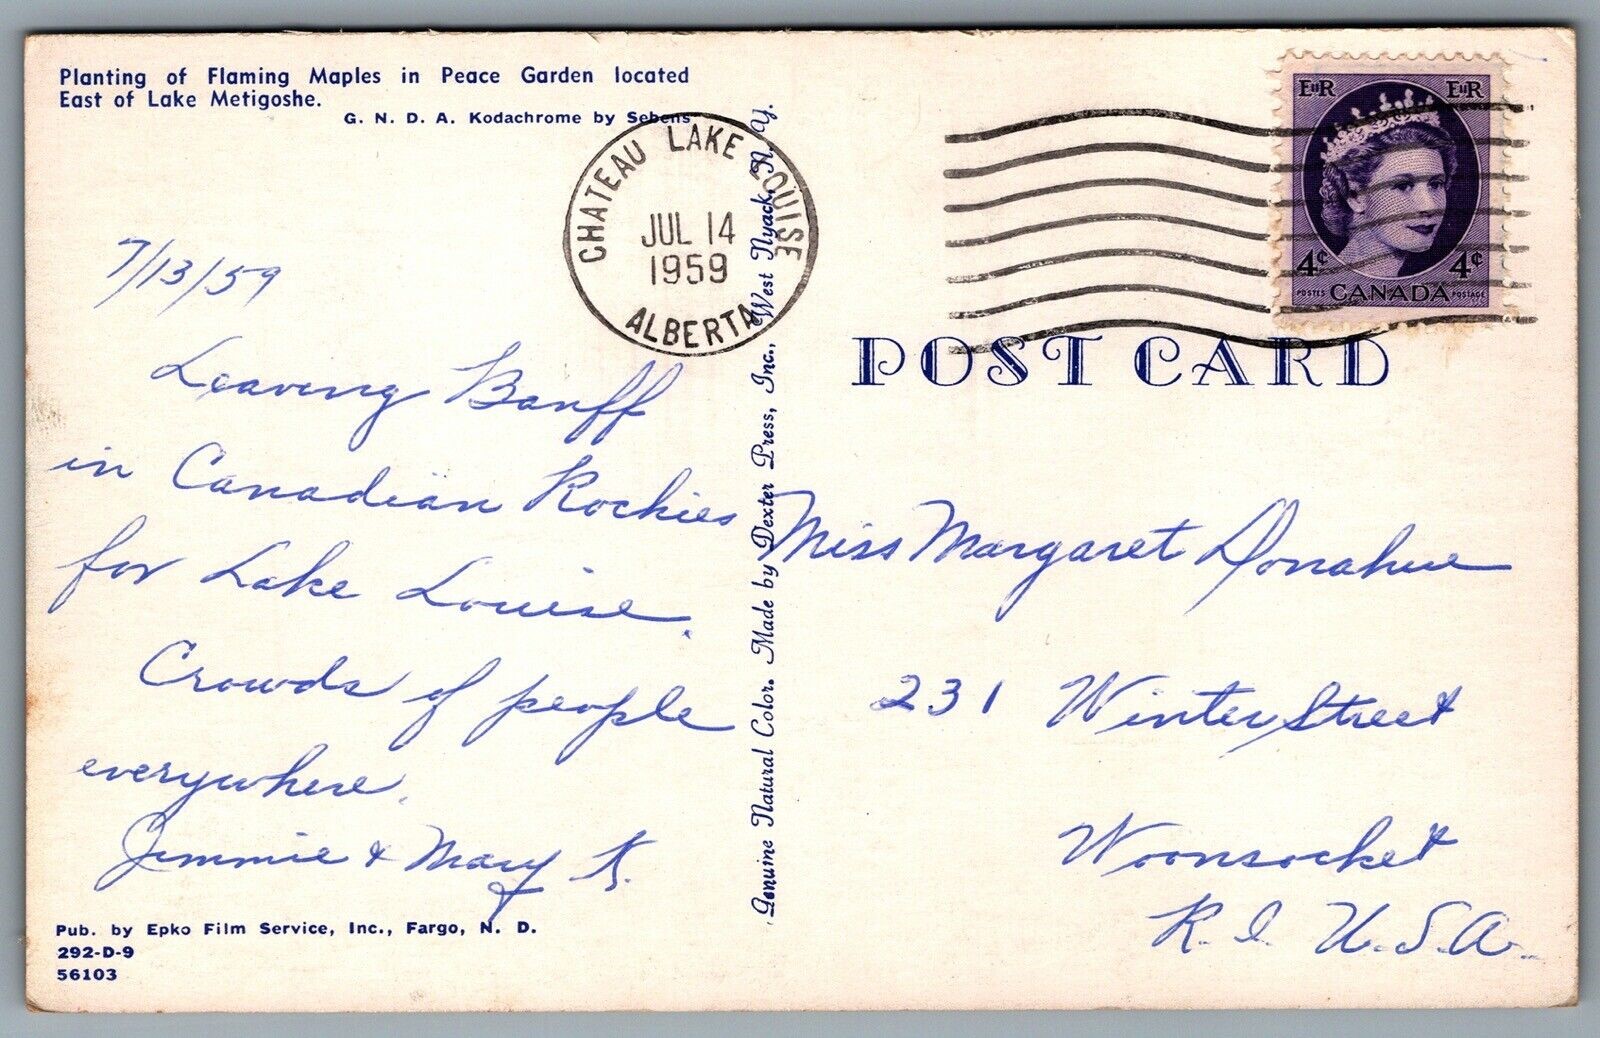 Planting of Flaming Maples in Peace Garden located
East of Lake Metigoshe.
G. N. D. A. Kodachrome by Sebens
CHATEAU LAKE LOUISE
JUL 14
1959
ALBERTA
EIIR EIIR
4c 4c
POSTES CANADA POSTAGE
POST CARD
7/13/59
Leaving Banff
in Canadian Rockies
for Lake Louise.
Crowds of people
everywhere.
Jimmie & Mary K.
Pub. by Epko Film Service, Inc., Fargo, N. D.
292-D-9
56103
Genuine Natural Color. Made by Dexter Press, Inc., West Nyack, N. Y.
Miss Margaret Donahue
231 Winter Street
Woonsocket
R. I. U.S.A.